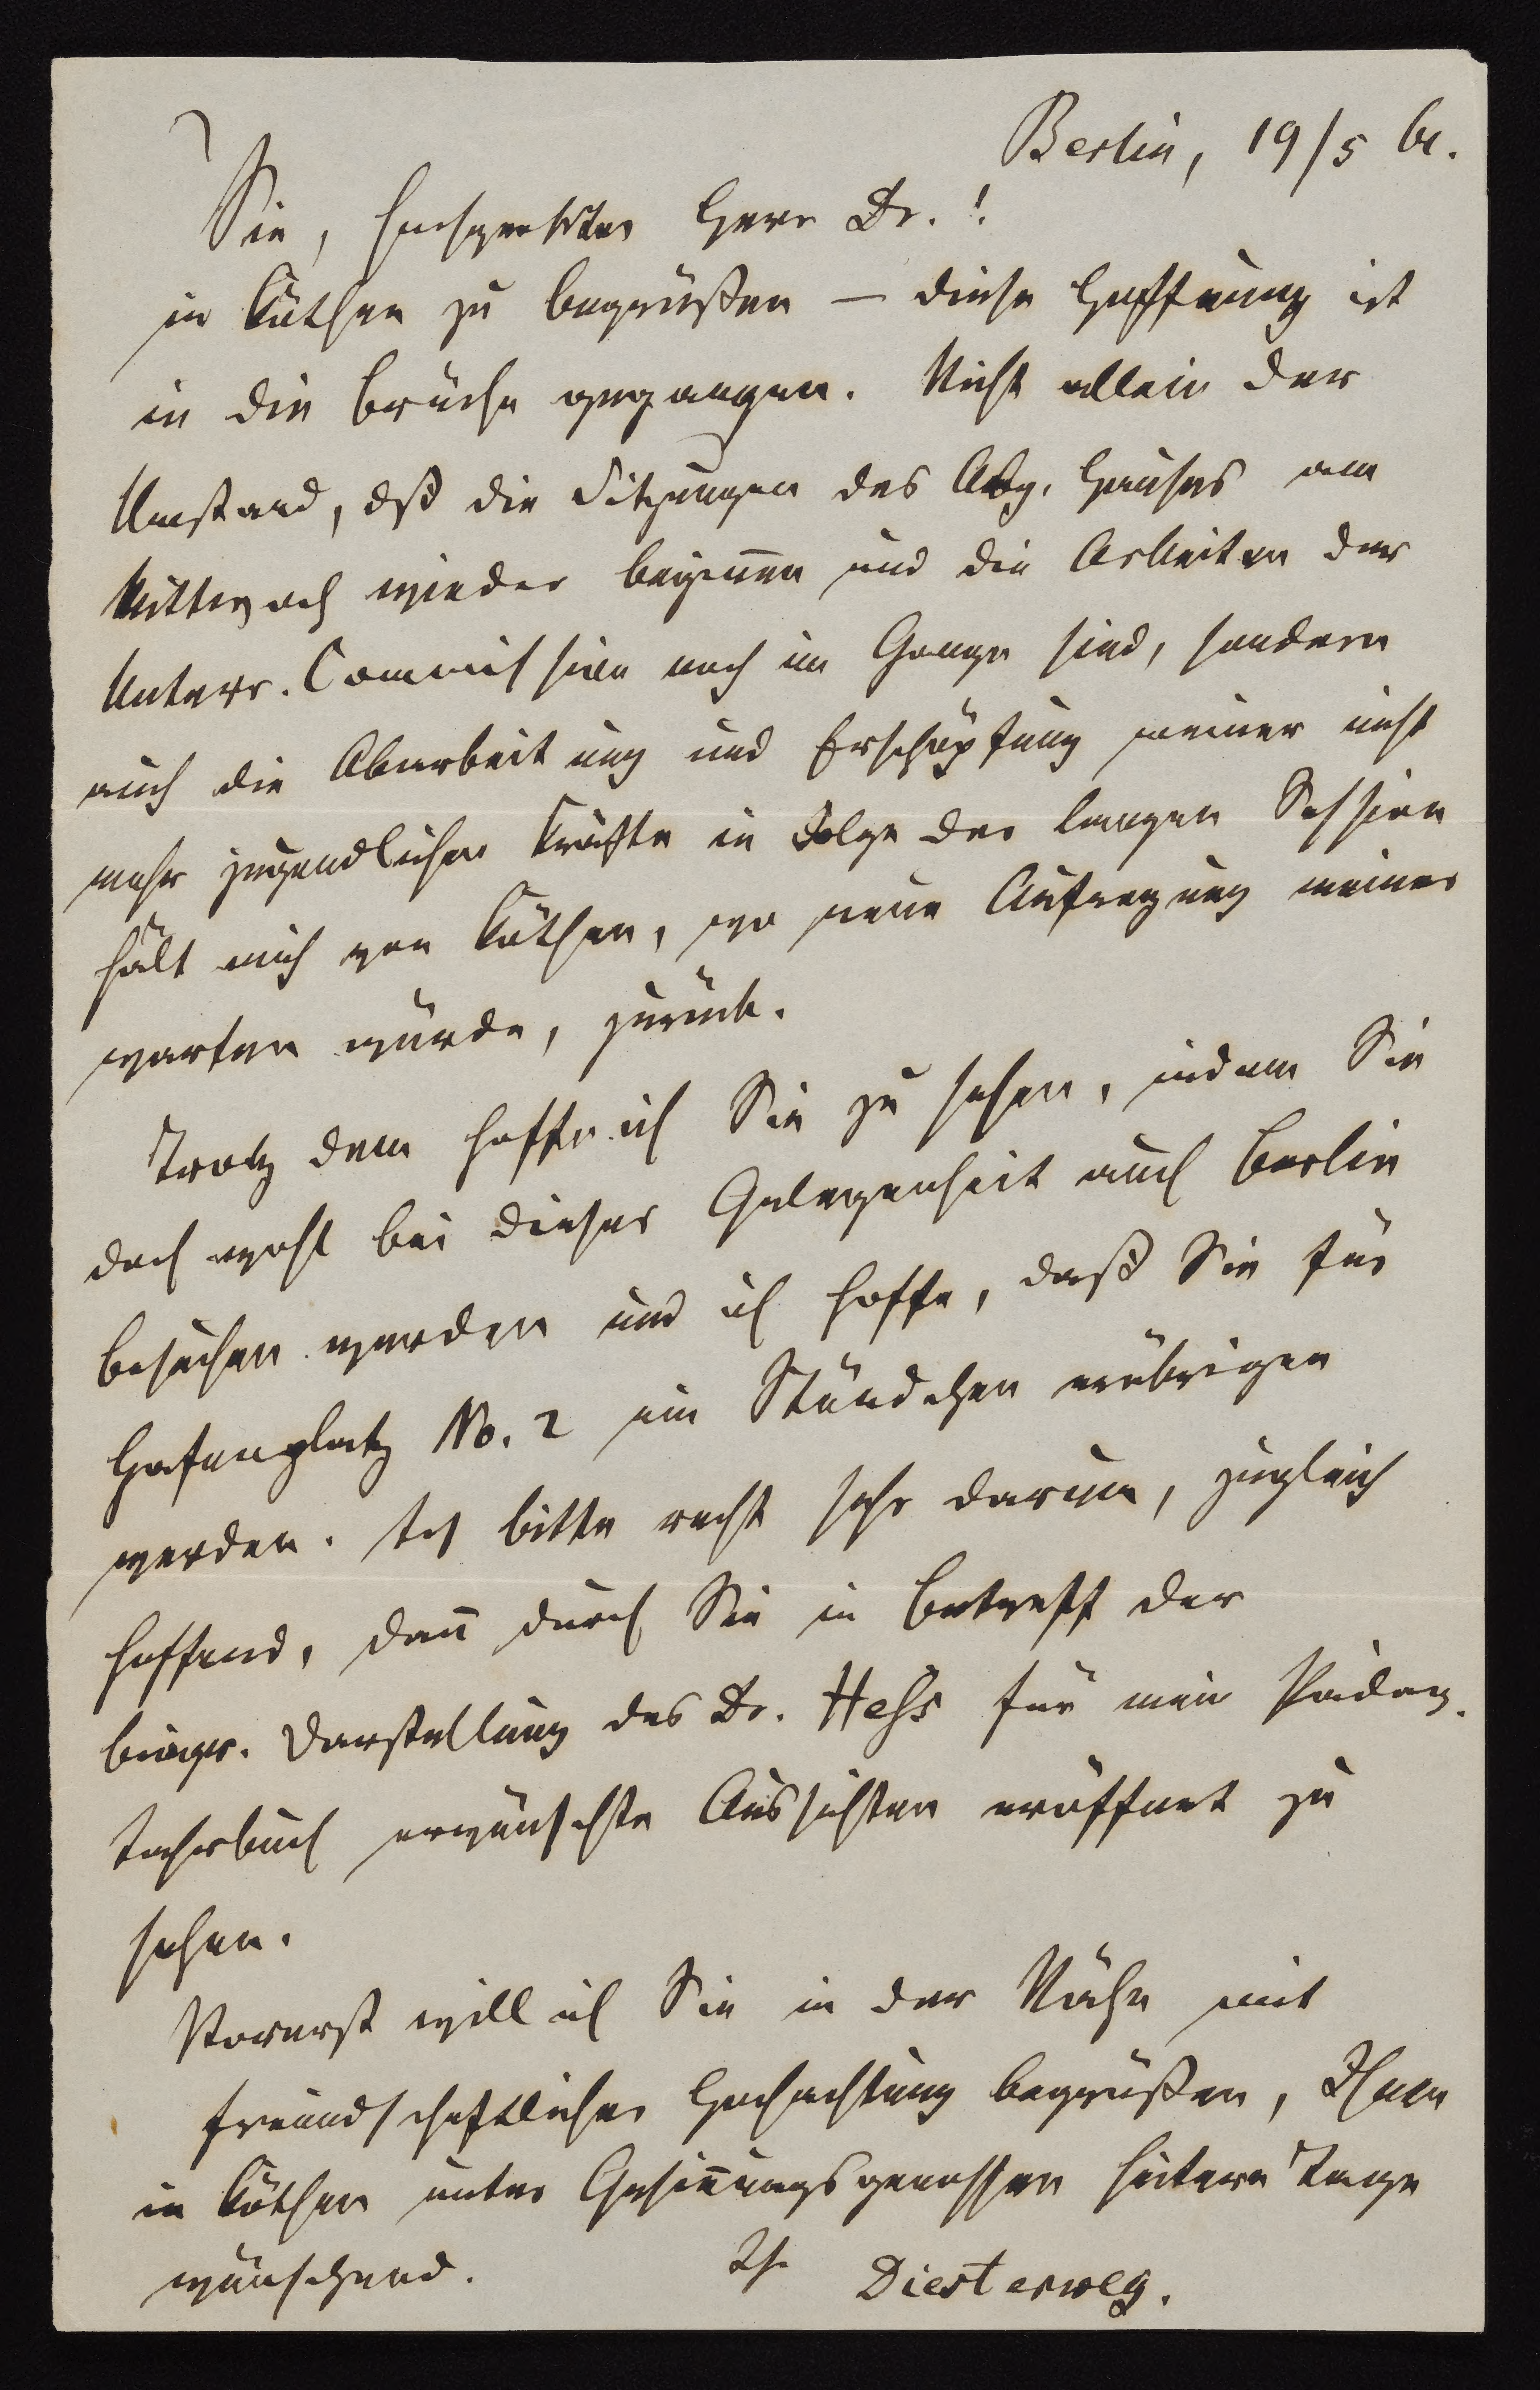 Berlin, 19/5 61.
Sie, hochgeehrter Herr Dr.!
in Köthen zu begrüßen — diese Hoffnung ist
in die Brüche gegangen. Nicht allein der
Umstand, dß die Sitzungen des Abg. Hauses am
Mittwoch wieder begiñen und die Arbeiten der
Unterr. Commission noch im Gange sind, sondern
auch die Abarbeitung und Erschöpfung meiner nicht
mehr jugendlichen Kräfte in Folge der langen Session
hält mich von Köthen, wo neue Aufregung meiner
warten würde, zurück.
Trotz dem hoffe ich Sie zu sehen, indem Sie
doch wohl bei dieser Gelegenheit auch Berlin
besuchen werden und ich hoffe, daß Sie für
Hafenplatz No. 2 ein Stündchen erübrigen
werden. Ich bitte recht sehr darum, zugleich
hoffend, dañ durch Sie in Betreff der
biogr. Darstellung des Dr. Hess für mein Pädag.
Jahrbuch erwünschte Aussichten eröffnet zu
sehen.
Vorerst will ich Sie in der Nähe mit
freundschaftlicher Hochachtung begrüßen, Ihnen
in Köthen unter Gesiñungsgenossen heitere Tage
wünschend. Ihr Diesterweg.